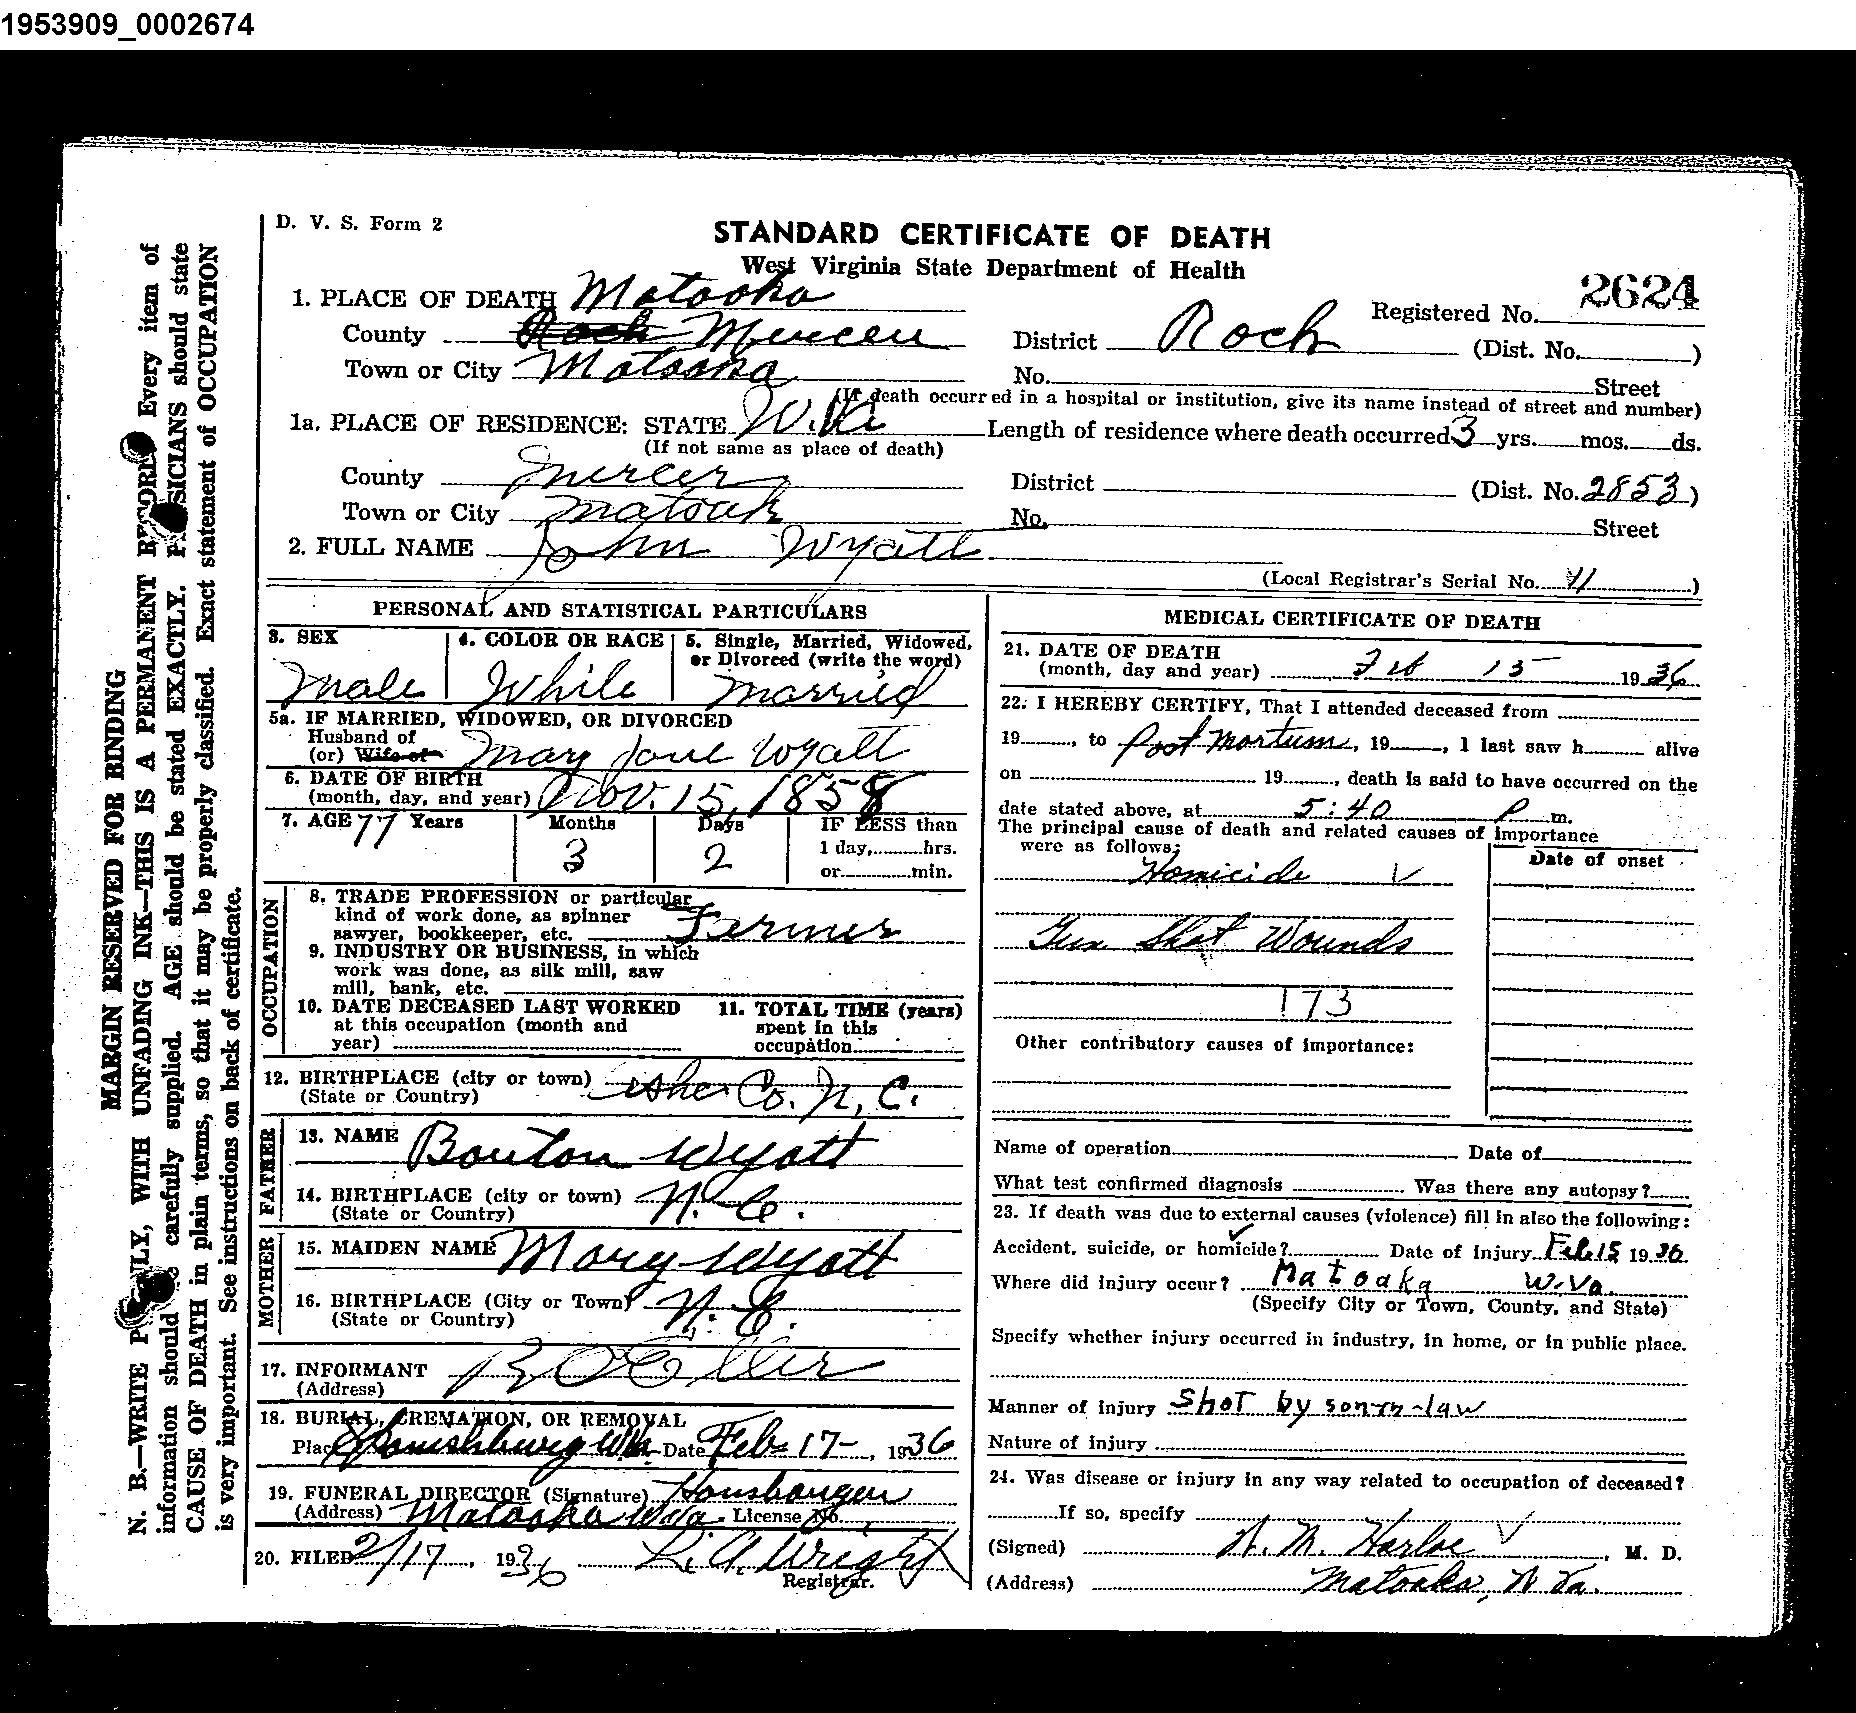 1953909_0002674
D. V. S. Form 2
STANDARD CERTIFICATE OF DEATH
West Virginia State Department of Health
2624
1. PLACE OF DEATH Matoaka
Registered No.
County Roch Mercer District Roch (Dist. No. )
Town or City Matoaka No. Street
(If death occurred in a hospital or institution, give its name instead of street and number)
1a. PLACE OF RESIDENCE: STATE W. Va Length of residence where death occurred 3 yrs. mos. ds.
(If not same as place of death)
County Mercer District (Dist. No. 2853)
Town or City Matoak No. Street
2. FULL NAME John Wyatt
(Local Registrar's Serial No. 11 )
PERSONAL AND STATISTICAL PARTICULARS
3. SEX 4. COLOR OR RACE 5. Single, Married, Widowed,
or Divorced (write the word)
Male White Married
5a. IF MARRIED, WIDOWED, OR DIVORCED
Husband of
(or) Wife of Mary Jane Wyatt
6. DATE OF BIRTH
(month, day, and year) Nov. 15, 1858
7. AGE 77 Years Months Days IF LESS than
3 2 1 day, hrs.
or min.
OCCUPATION
8. TRADE PROFESSION or particular
kind of work done, as spinner
sawyer, bookkeeper, etc. Fermer
9. INDUSTRY OR BUSINESS, in which
work was done, as silk mill, saw
mill, bank, etc.
10. DATE DECEASED LAST WORKED 11. TOTAL TIME (years)
at this occupation (month and spent in this
year) occupation
12. BIRTHPLACE (city or town) Ashe Co. N. C.
(State or Country)
FATHER
13. NAME Bouton Wyatt
14. BIRTHPLACE (city or town) N. C.
(State or Country)
MOTHER
15. MAIDEN NAME Mary Wyatt
16. BIRTHPLACE (City or Town) N. C.
(State or Country)
17. INFORMANT
(Address)
18. BURIAL, CREMATION, OR REMOVAL
Place Spanishburg W Va. Date Feb 17-, 1936
19. FUNERAL DIRECTOR (Signature)
(Address) Matoaka W Va. License No.
20. FILED 2/17, 1936 L. A. Wright
Registrar.
MEDICAL CERTIFICATE OF DEATH
21. DATE OF DEATH
(month, day and year) Feb 15 1936
22. I HEREBY CERTIFY, That I attended deceased from
19 , to Post Mortum, 19 , I last saw h alive
on 19 , death is said to have occurred on the
date stated above, at 5:40 P m.
The principal cause of death and related causes of importance
were as follows:
Date of onset
Homicide V
Gun Shot Wounds
173
Other contributory causes of importance:
Name of operation Date of
What test confirmed diagnosis Was there any autopsy?
23. If death was due to external causes (violence) fill in also the following:
Accident, suicide, or homicide? Date of Injury Feb. 15 1936
Where did injury occur? Matoaka W.Va.
(Specify City or Town, County, and State)
Specify whether injury occurred in industry, in home, or in public place.
Manner of injury Shot by son-in-law
Nature of injury
24. Was disease or injury in any way related to occupation of deceased?
If so, specify
(Signed) Harloe, M. D.
(Address) Matoaka, W Va.
MARGIN RESERVED FOR BINDING
N. B.—WRITE PLAINLY, WITH UNFADING INK—THIS IS A PERMANENT RECORD. Every item of
information should be carefully supplied. AGE should be stated EXACTLY. PHYSICIANS should state
CAUSE OF DEATH in plain terms, so that it may be properly classified. Exact statement of OCCUPATION
is very important. See instructions on back of certificate.